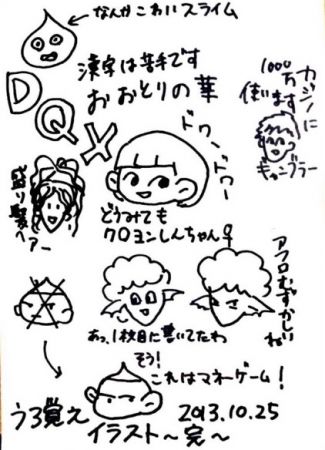 なんかこわいスライム
DQX
漢字は苦手です
おおとりの華
カジノに
1000万
使います
ギャンブラー
ドゥードゥー
盛り髪ヘアー
どうみても
クロヨンしんちゃん♀
アフロむずかしいね
あっ、1枚目に書いてたわ
そう!
これはマネーゲーム!
うろ覚え
イラスト〜完〜
2013.10.25